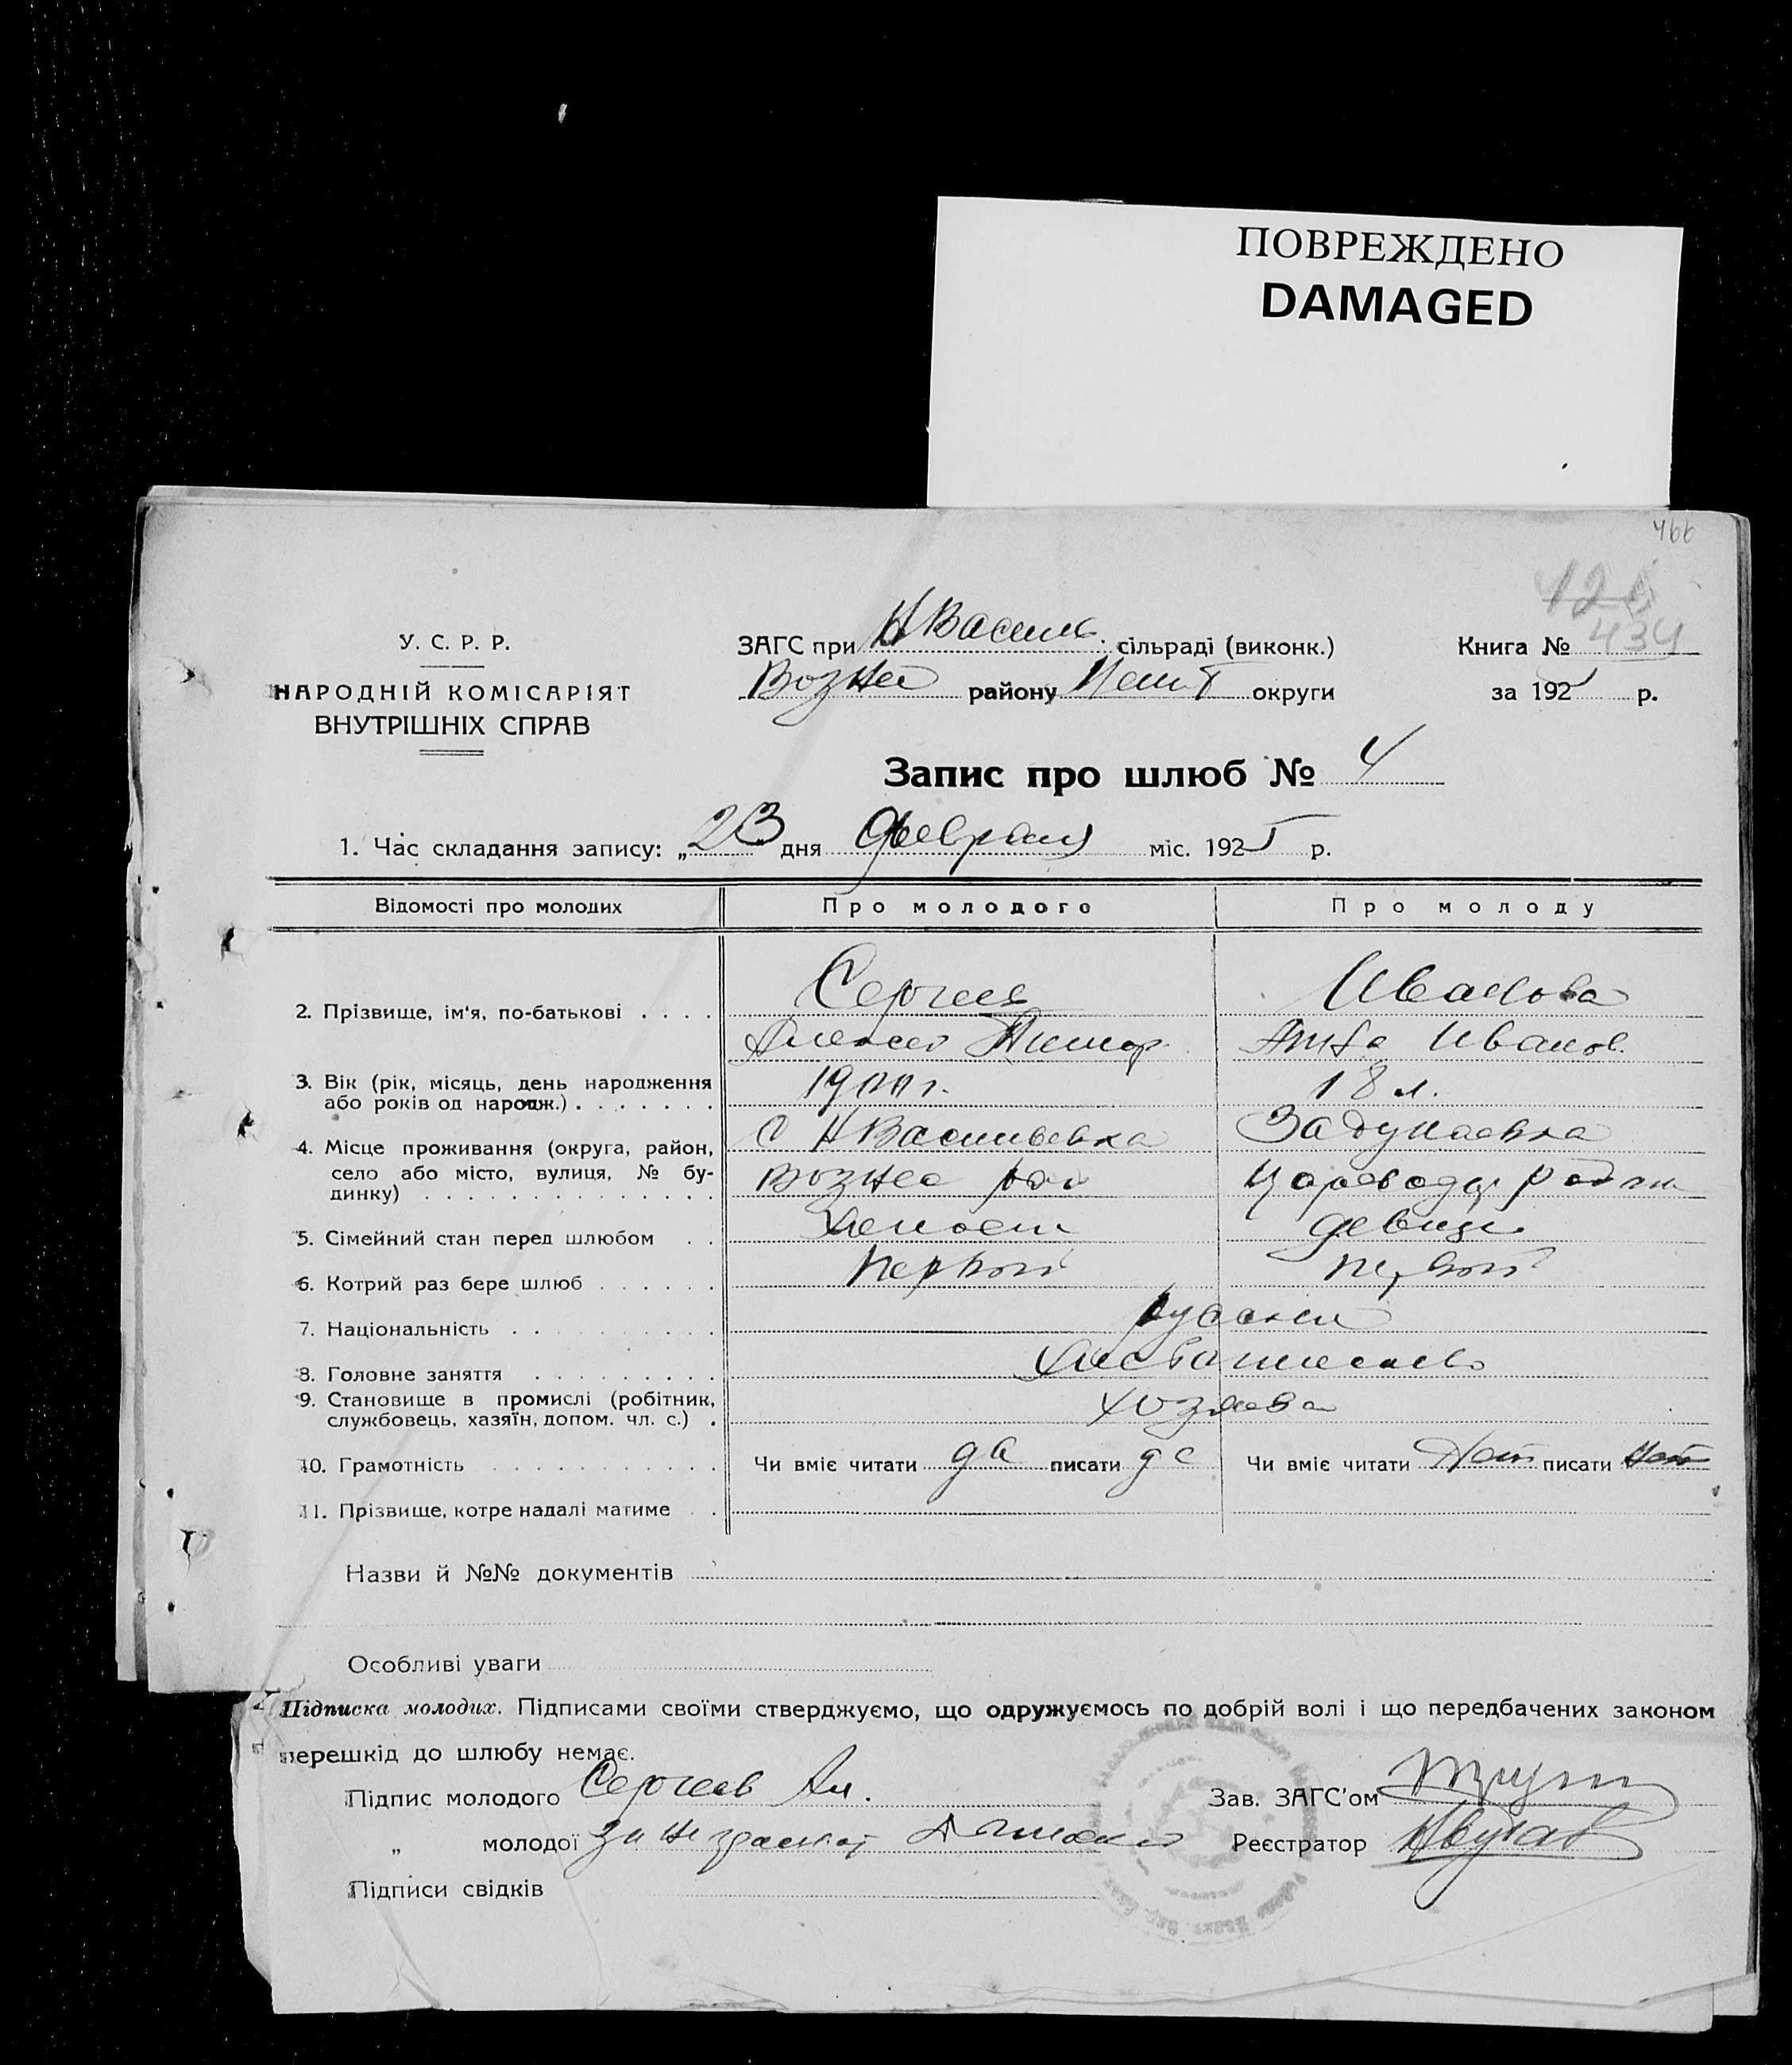 ПОВРЕЖДЕНО
DAMAGED
466
434
У. С. Р. Р.
НАРОДНІЙ КОМІСАРІЯТ
ВНУТРІШНІХ СПРАВ
ЗАГС при Н Василь. сільраді (виконк.)
Вознес району округи
Книга №
за 1925 р.
Запис про шлюб № 4
1. Час складання запису: „23 дня февраля міс. 1925 р.
Відомості про молодих
Про молодого
Про молоду
2. Прізвище, ім'я, по-батькові
Сергеев
Иванова
Алексей
Анна Иванов.
3. Вік (рік, місяць, день народження
або років од народж.)
1900 г.
18 л.
4. Місце проживання (округа, район,
село або місто, вулиця, № бу-
динку)
С Н Васильевка
Задунаевка
Вознес рай
Цареводар район
5. Сімейний стан перед шлюбом
Холост
девица
6. Котрий раз бере шлюб
первый
первый
7. Національність
русские
8. Головне заняття
Хлебопашество
9. Становище в промислі (робітник,
службовець, хазяїн, допом. чл. с.)
хозяева
10. Грамотність
Чи вміє читати да писати да
Чи вміє читати Нет писати Нет
11. Прізвище, котре надалі матиме
Назви й №№ документів
Особливі уваги
Підписка молодих. Підписами своїми стверджуємо, що одружуємось по добрій волі і що передбачених законом
перешкід до шлюбу немає.
Підпис молодого Сергеев Ал.
Зав. ЗАГС'ом
„ молодої за неграмот
Реєстратор
Підписи свідків